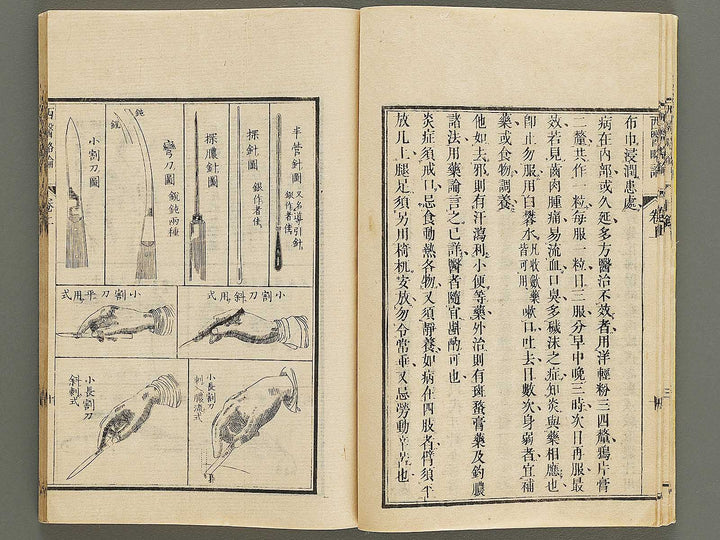 布巾浸潤患處、
病在內部或久延、多方醫治不效者、用洋輕粉三四釐、鴉片膏
二釐共作一粒、每服一粒、日三服、分早中晚三時、次日再服、最
效、若見齒肉腫痛、易流血、口臭多穢沫之症、知炎與藥相應也、
即止勿服、用白礬水、凡收斂藥皆可用、嗽口、吐去、日數次、身弱者、宜補
藥或食物調養、
他如去邪則有汗瀉利小便等藥、外治則有斑蝥膏藥、及釣膿
諸法、用藥論言之已詳、醫者隨宜斟酌可也
炎症須戒口、忌食動熱各物、又須靜養、如病在四肢者、臂須平
放几上、腿足須另用椅杌安放、勿令常垂、又忌勞動辛苦也、
西醫略論
卷上
半管針圖
又名導引針
銀作者佳
探針圖
銀作者佳
探膿針圖
彎刀圖
銳鈍兩種
鈍
銳
小割刀圖
小割刀斜用式
小割刀平用式
小長割刀
刺膿流式
小長割刀
斜刺式
西醫略論
卷上